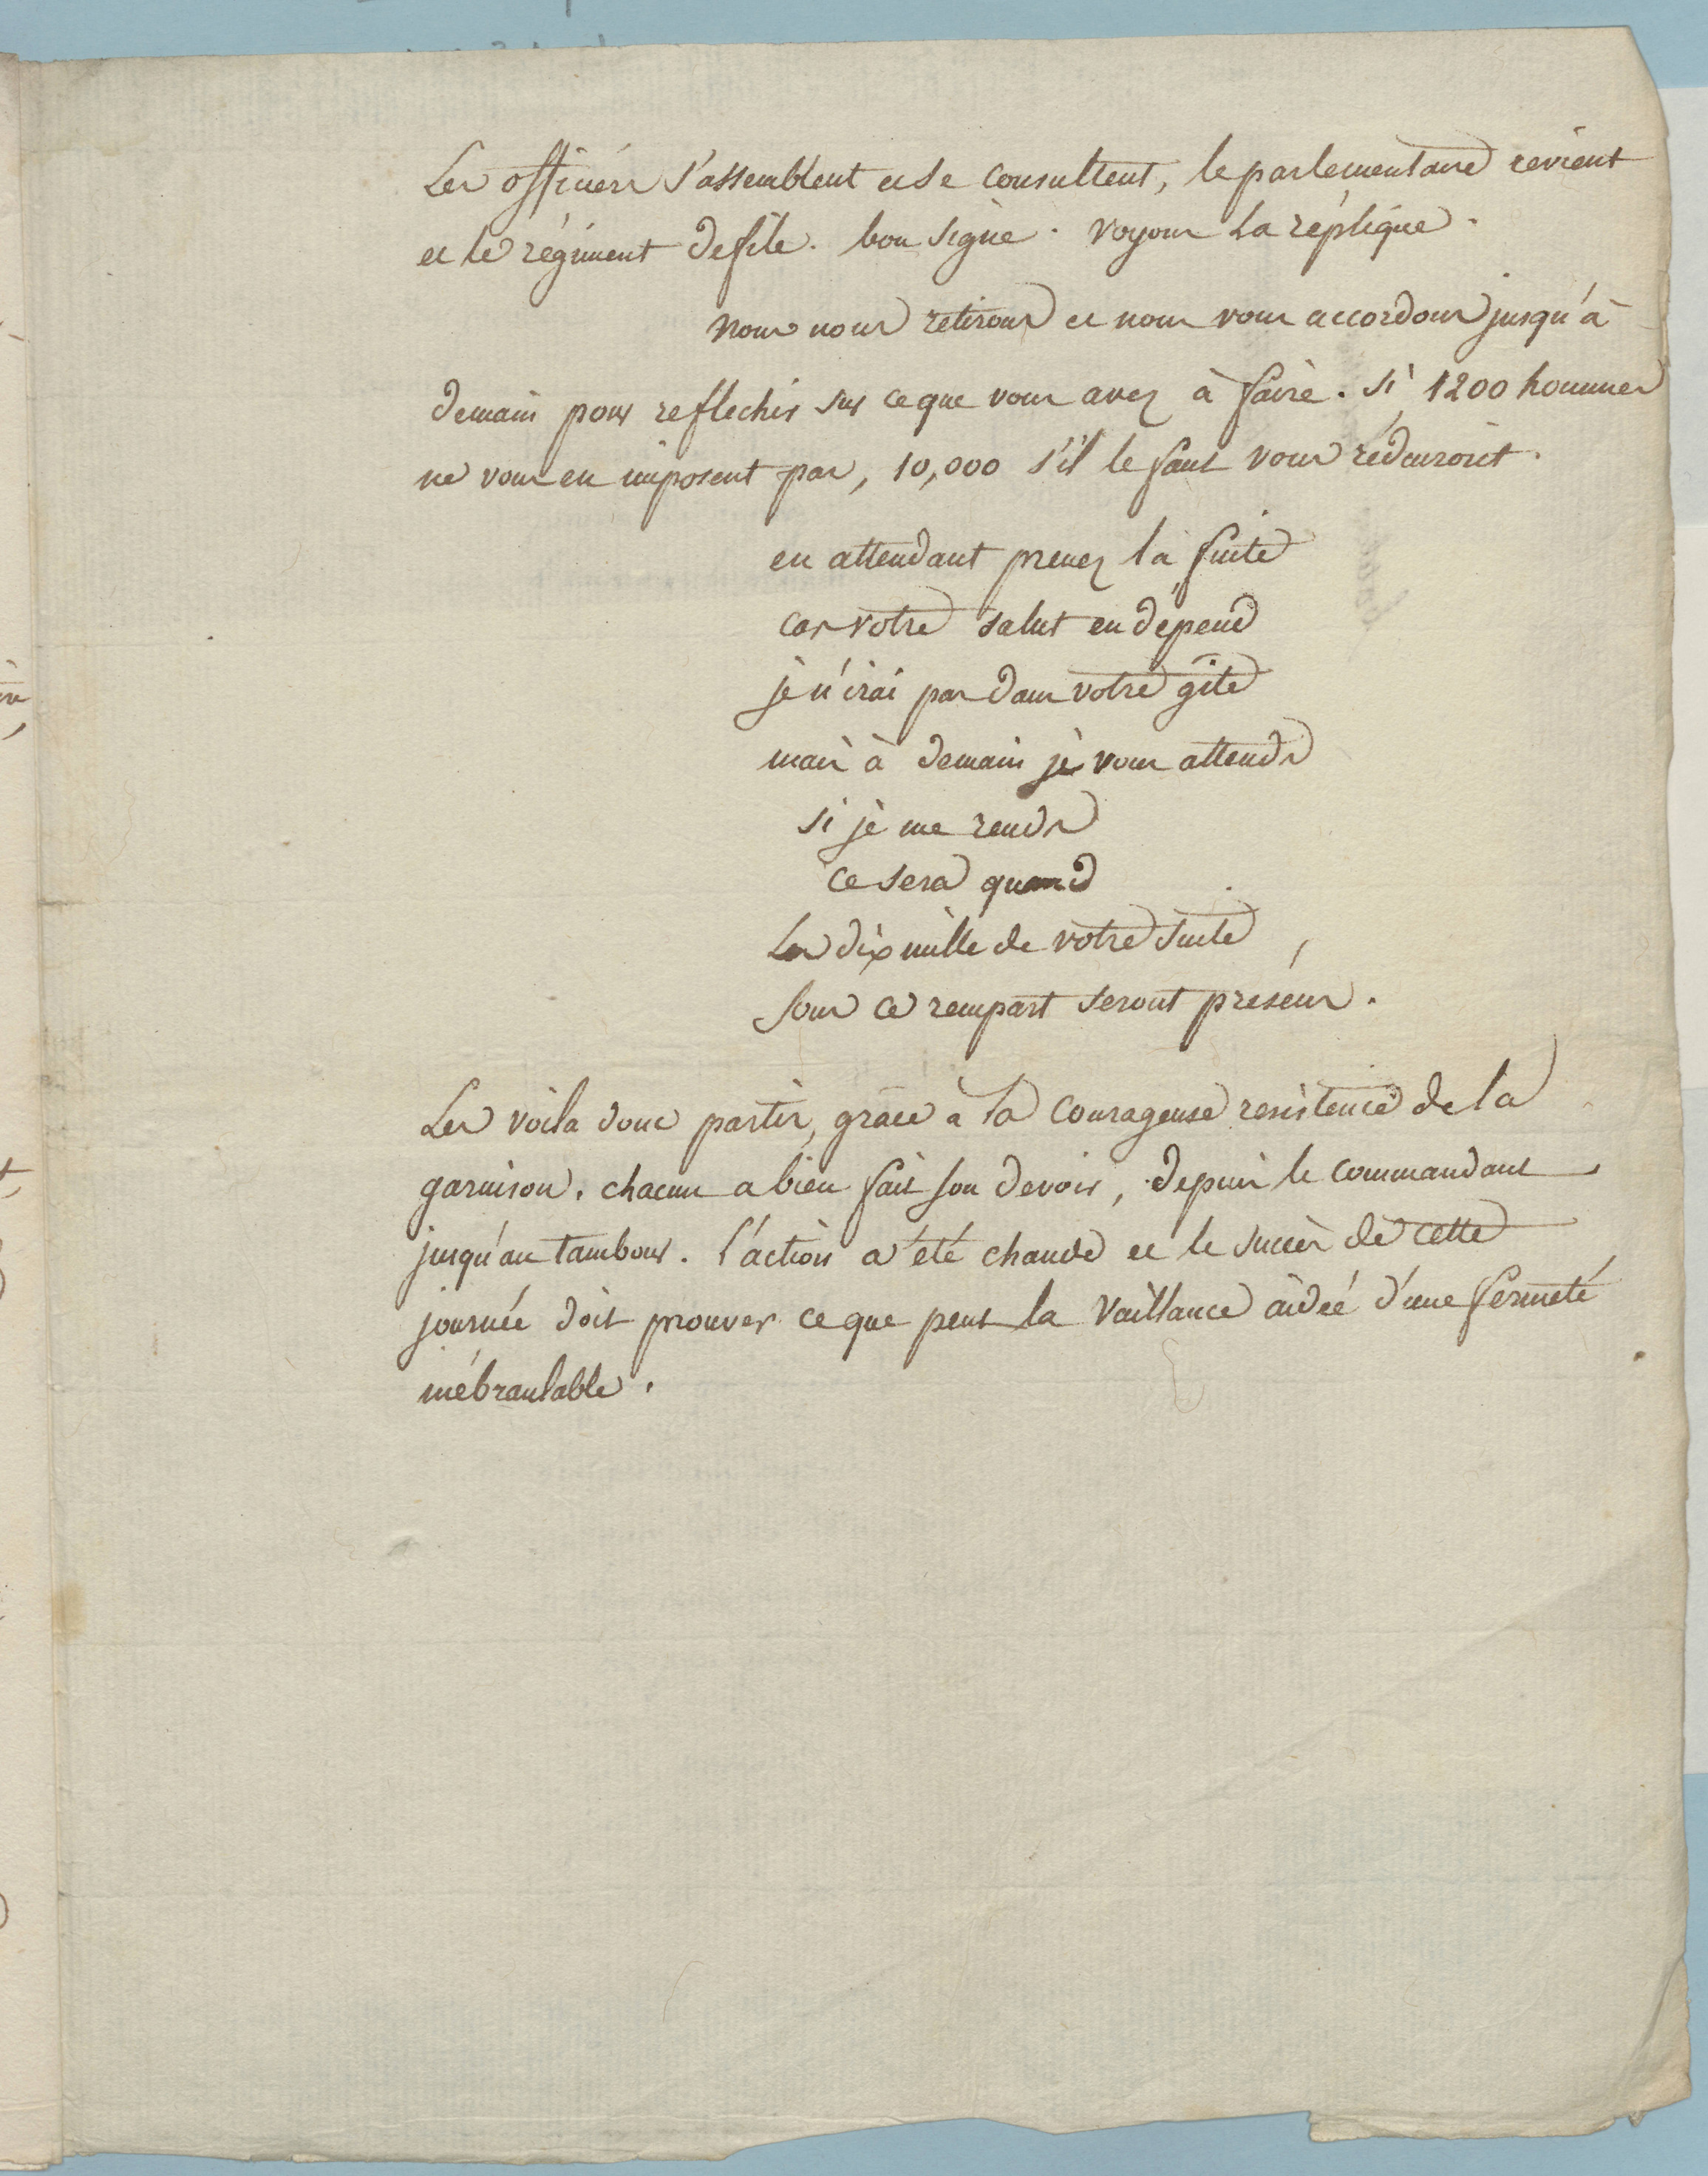 Les officiers s'assemblent et se consultent, le parlementaire revient
et le régiment defile. bon signe. voyons la réplique.
nous nous retirons et nous vous accordons jusqu'à
demain pour reflechir sur ce que vous avez à faire. si 1200 hommes
ne vous en imposent pas, 10,000 s'il le faut vous réduiront.
en attendant prenez la fuite
car votre salut en dépend
je n'irai pas dans votre gîte
mais à demain je vous attends
si je me rends
ce sera quand
les dix mille de votre suite
sous ce rempart seront présens.
Les voila donc partis, grace à la courageuse resistence de la
garnison. chacun a bien fait son devoir, depuis le commandant
jusqu'au tambour. l'action a été chaude et le succès de cette
journée doit prouver ce que peut la vaillance aidée d'une fermeté
inébranlable.